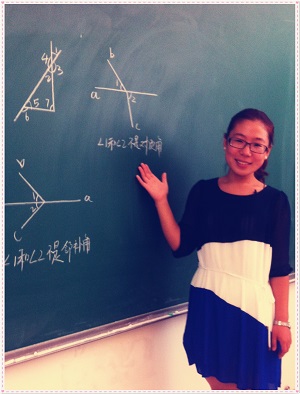 4 1
2 3
5 7
6
b
a 1
2
c
∠1和∠2不是对顶角
b
1 a
2
c
∠1和∠2不是邻补角